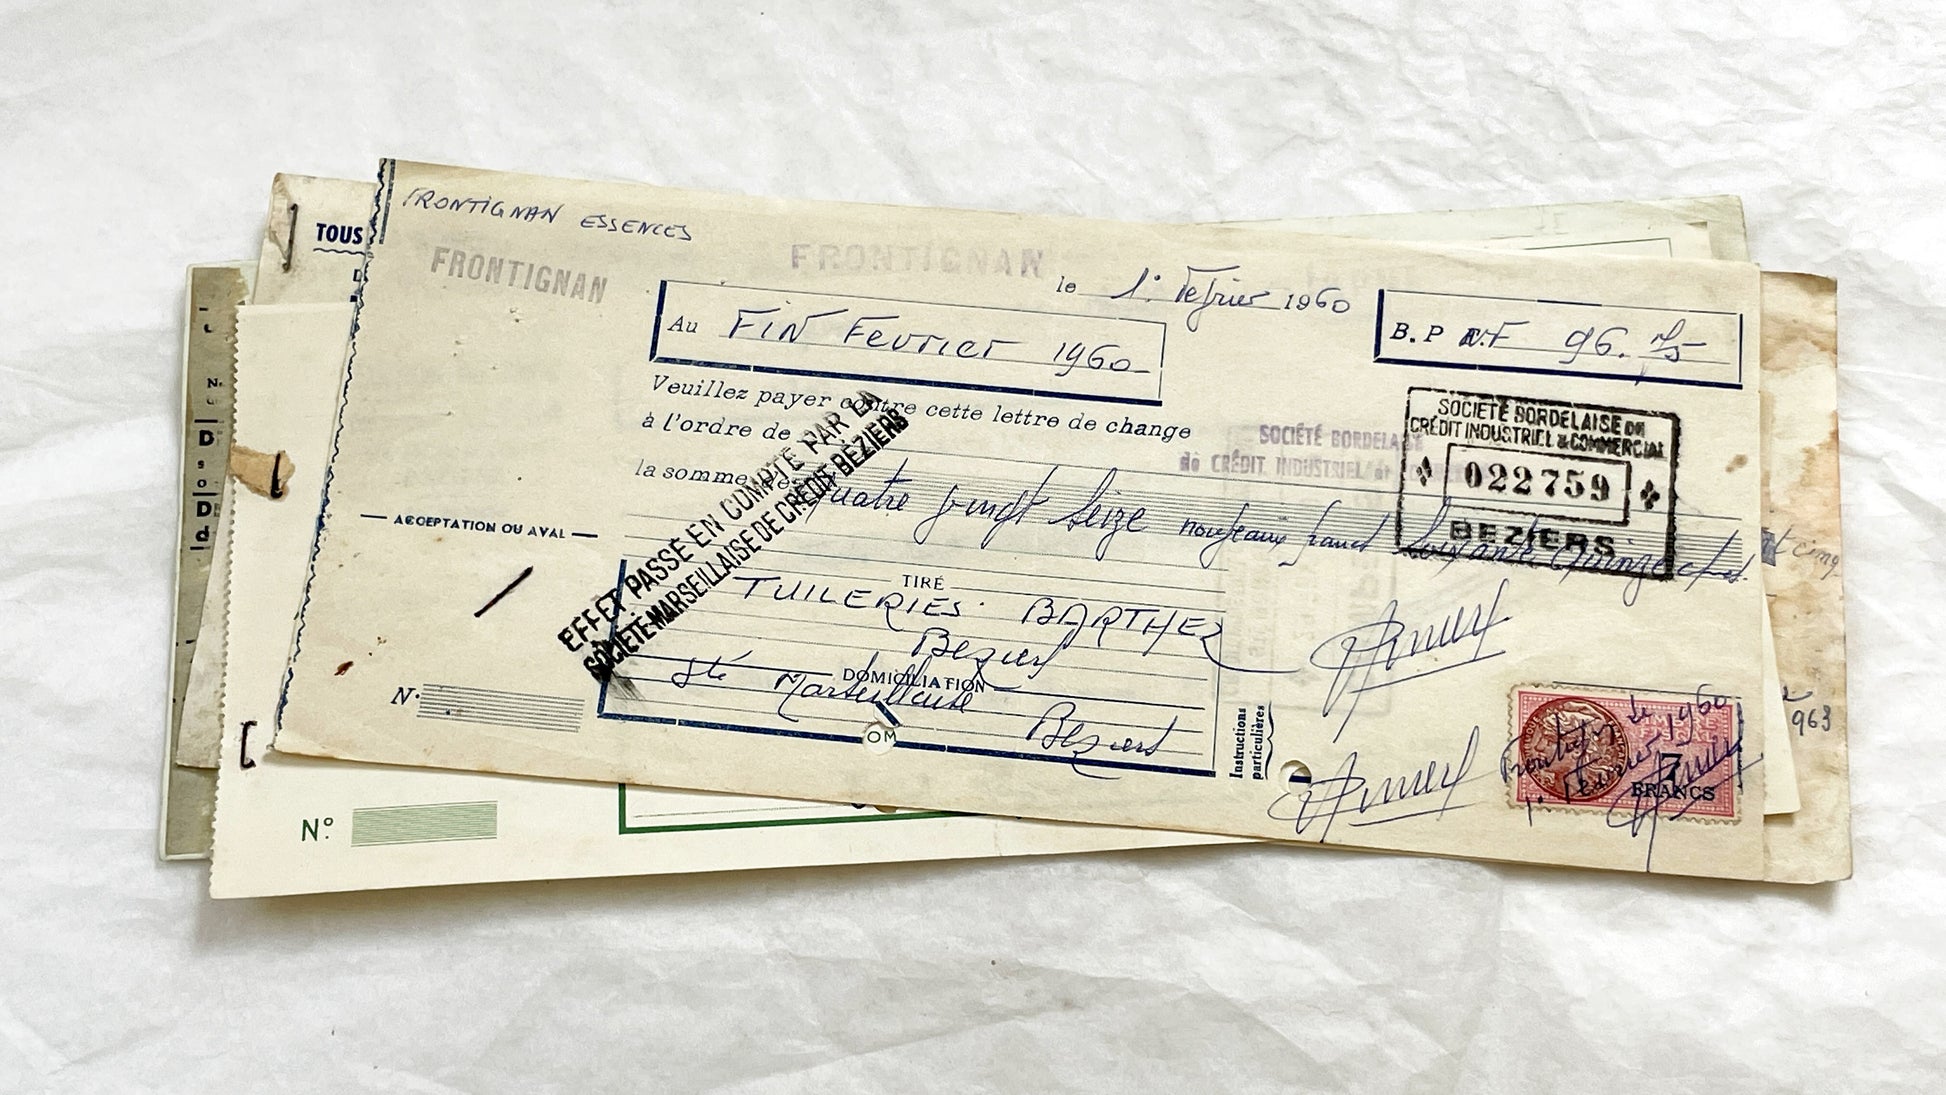 FRONTIGNAN ESSENCES
FRONTIGNAN
FRONTIGNAN
le 1° Fevrier 1960
Au FIN FEVRIER 1960
B.P N.F 96.75
TOUS
Veuillez payer contre cette lettre de change
à l'ordre de
SOCIÉTÉ BORDELA
de CRÉDIT INDUSTRIEL et
la somme
quatre vingt seize nouveaux francs soixante quinze
SOCIÉTÉ BORDELAISE DE
CRÉDIT INDUSTRIEL & COMMERCIAL
022759
BEZIERS
EFFET PASSÉ EN COMPTE PAR LA
SOCIÉTÉ MARSEILLAISE DE CRÉDIT BÉZIERS
ACCEPTATION OU AVAL
TIRÉ
TUILERIES BARTHEZ
Beziers
DOMICILIATION
Sté Marseillaise
Beziers
OM
N°
Instructions
particulières
Frontignan le
1° Fevrier 1960
7
FRANCS
cinq
963
N°